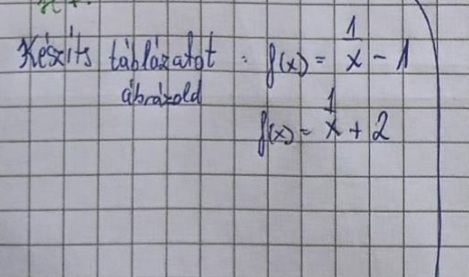 Készíts táblázatot : f(x) = 1/x - 1
ábrázold
f(x) = 1/x + 2